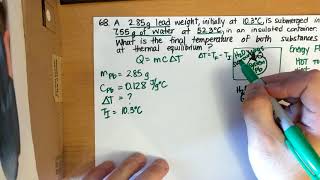 68. A 2.85g lead weight, initially at 10.3°C, is submerged in
7.55g of water at 52.3°C, in an insulated container.
What is the final temperature of both substances
at thermal equilibrium?
Energy
Q = mCΔT
ΔT = TF - TI
HOT TO
mPb = 2.85g
CPb = 0.128 J/g°C
ΔT = ?
TI = 10.3°C